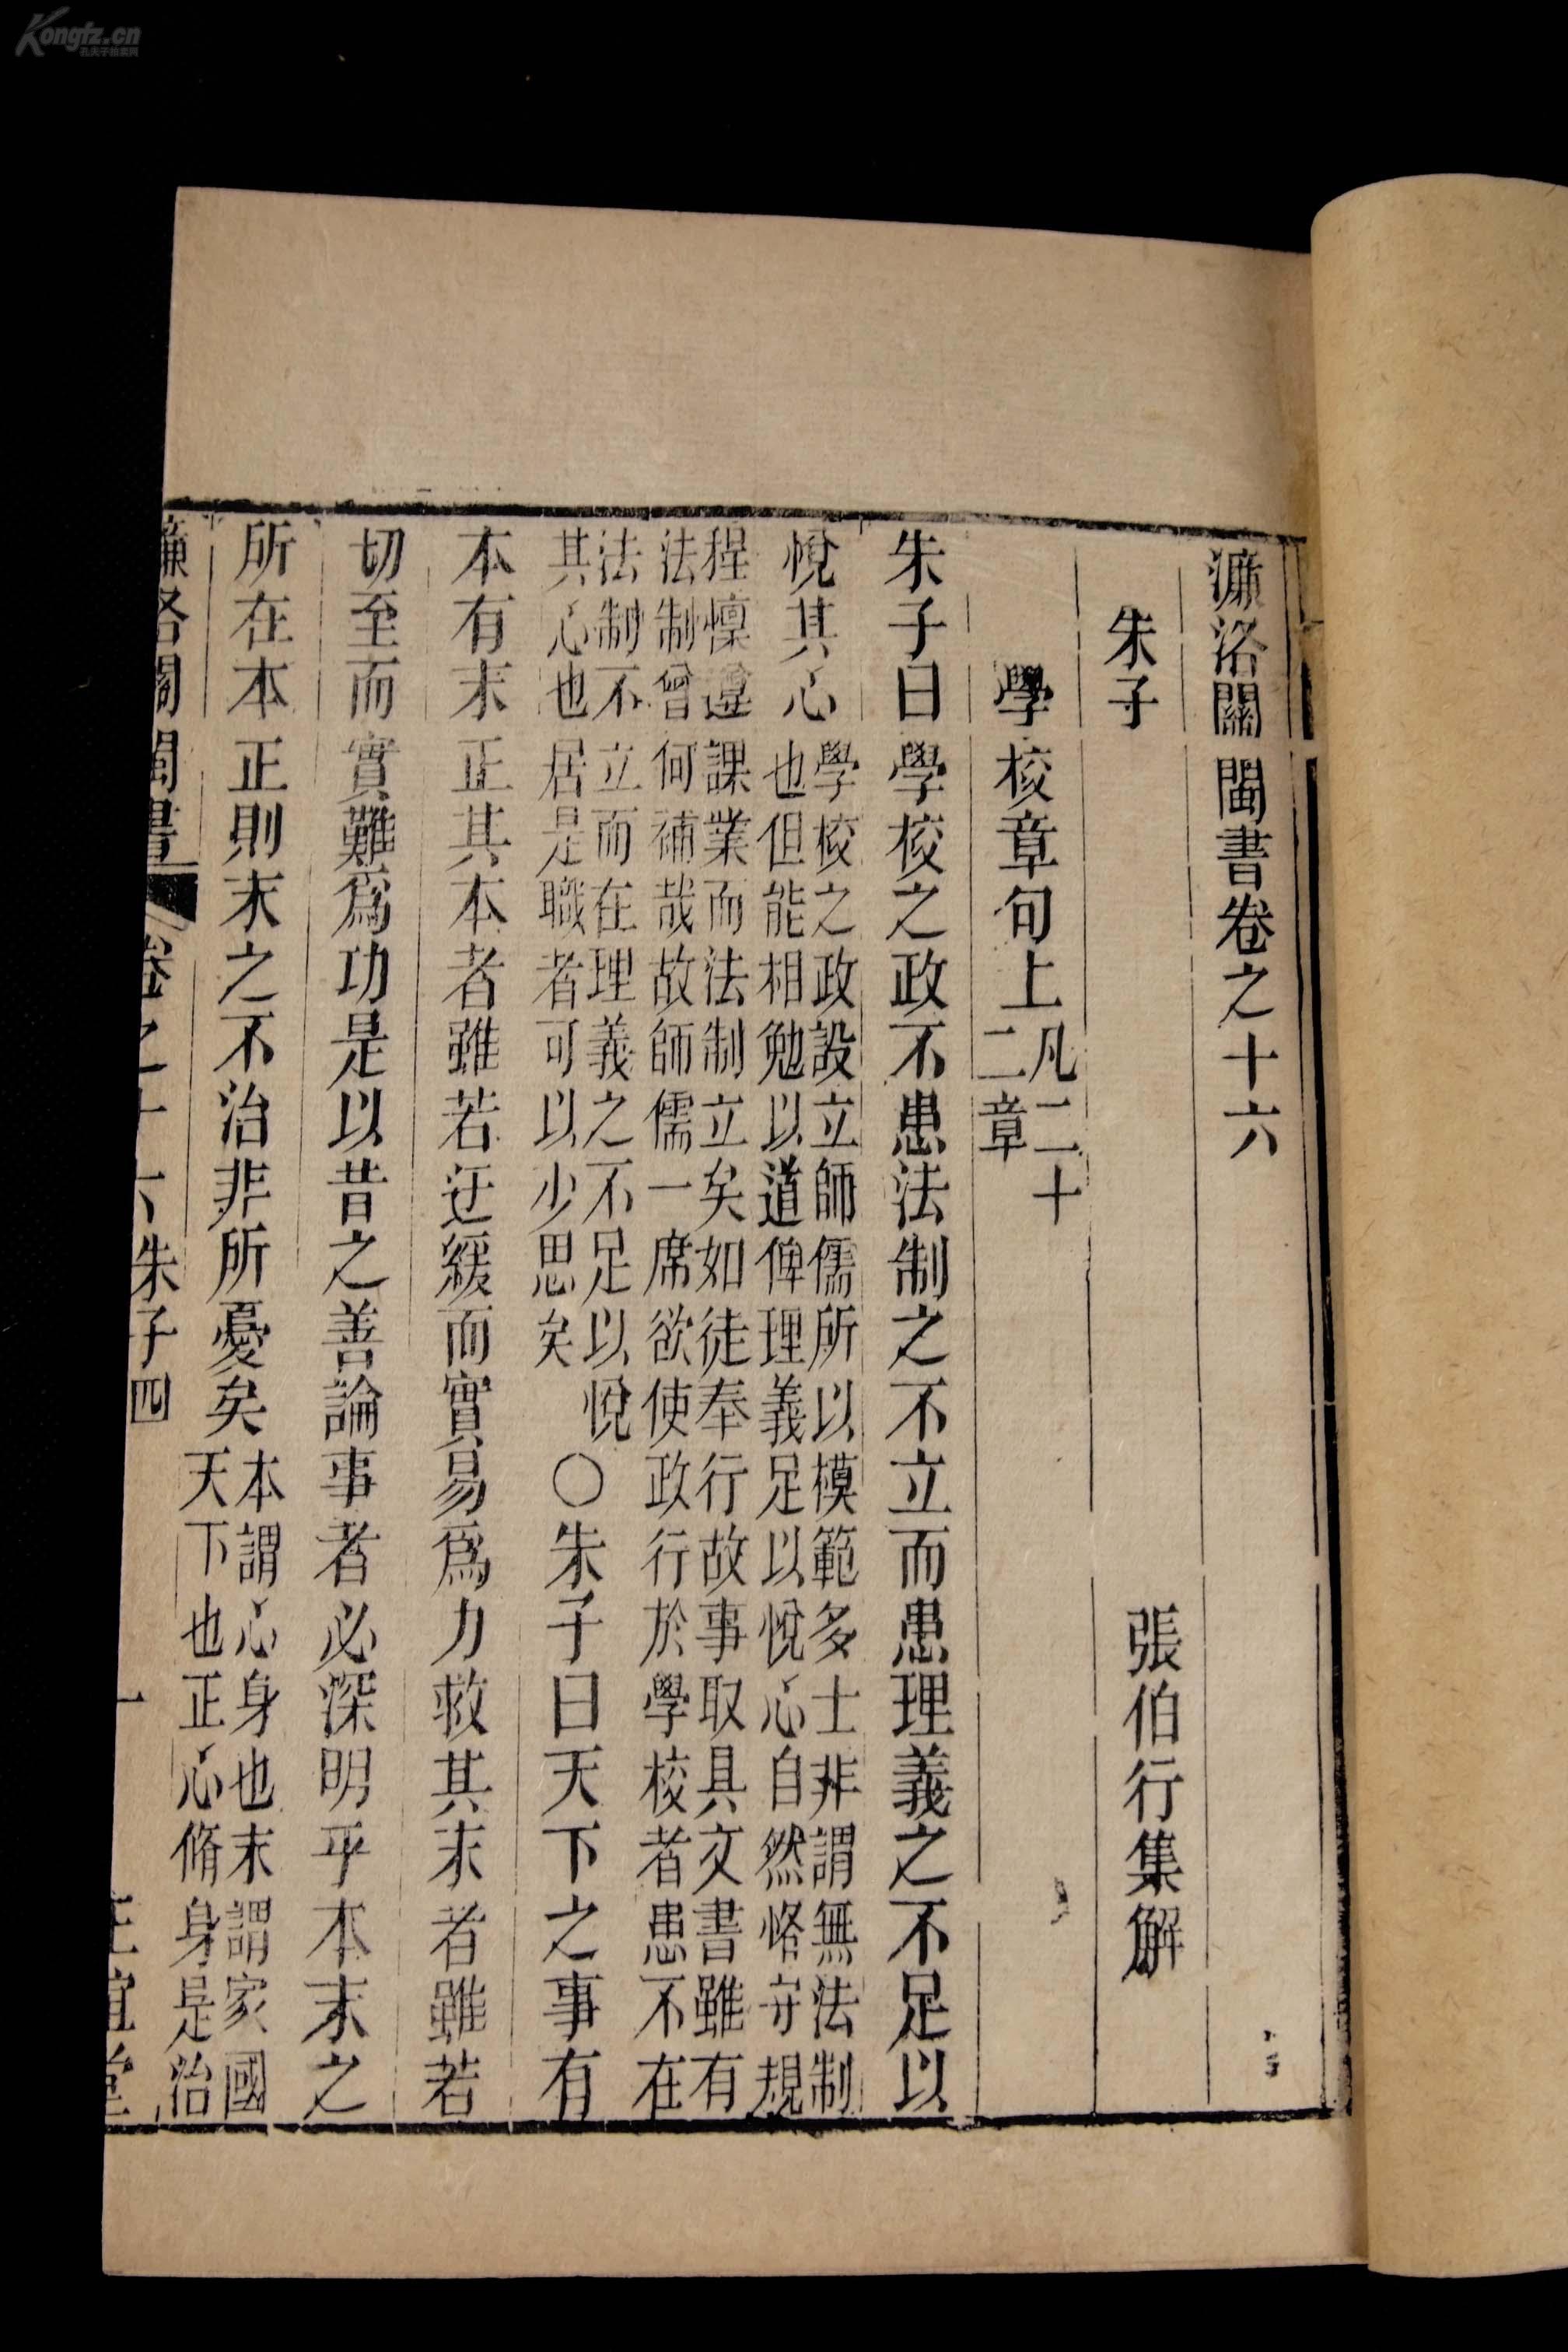 濂洛關閩書卷之十六
朱子 張伯行集解
學校章句上
凡二十
二章
朱子曰學校之政不患法制之不立而患理義之不足以
悅其心
學校之政設立師儒所以模範多士非謂無法制
也但能相勉以道俾理義足以悅心自然恪守規
程懍遵課業而法制立矣如徒奉行故事取具文書雖有
法制曾何補哉故師儒一席欲使政行於學校者患不在
法制不立而在理義之不足以悅
其心也居是職者可以少思矣
○朱子曰天下之事有
本有末正其本者雖若迂緩而實易爲力救其末者雖若
切至而實難爲功是以昔之善論事者必深明乎本末之
所在本正則末之不治非所憂矣
本謂心身也末謂家國
天下也正心脩身是治
濂洛關閩書 卷之十六 朱子四 一 正誼堂
Kongfz.cn